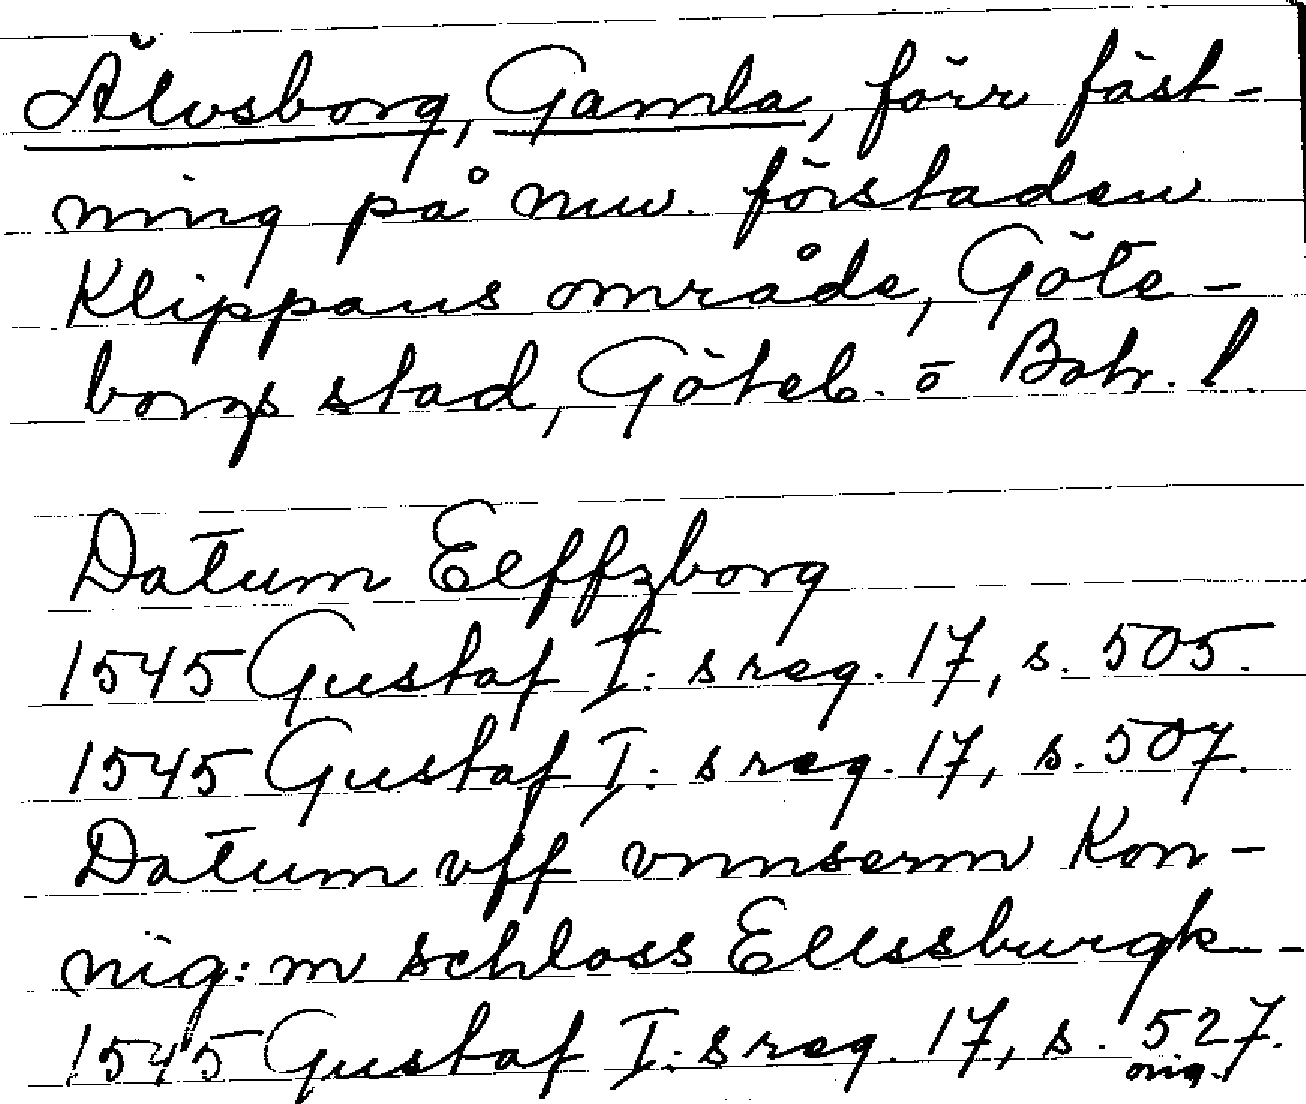 Älvsborg, Gamla, förr fäst-
ning på nuv. förstaden
Klippans område, Göte-
borgs stad, Göteb. o Boh. l.
Datum Eelffzborg
1545 Gustaf I:s reg. 17, s. 505.
1545 Gustaf I:s reg. 17, s. 507.
Datum vff vnnserm Kon-
nig:m schloss Ellssburgk--
1545 Gustaf I:s reg. 17, s. 527.
orig.